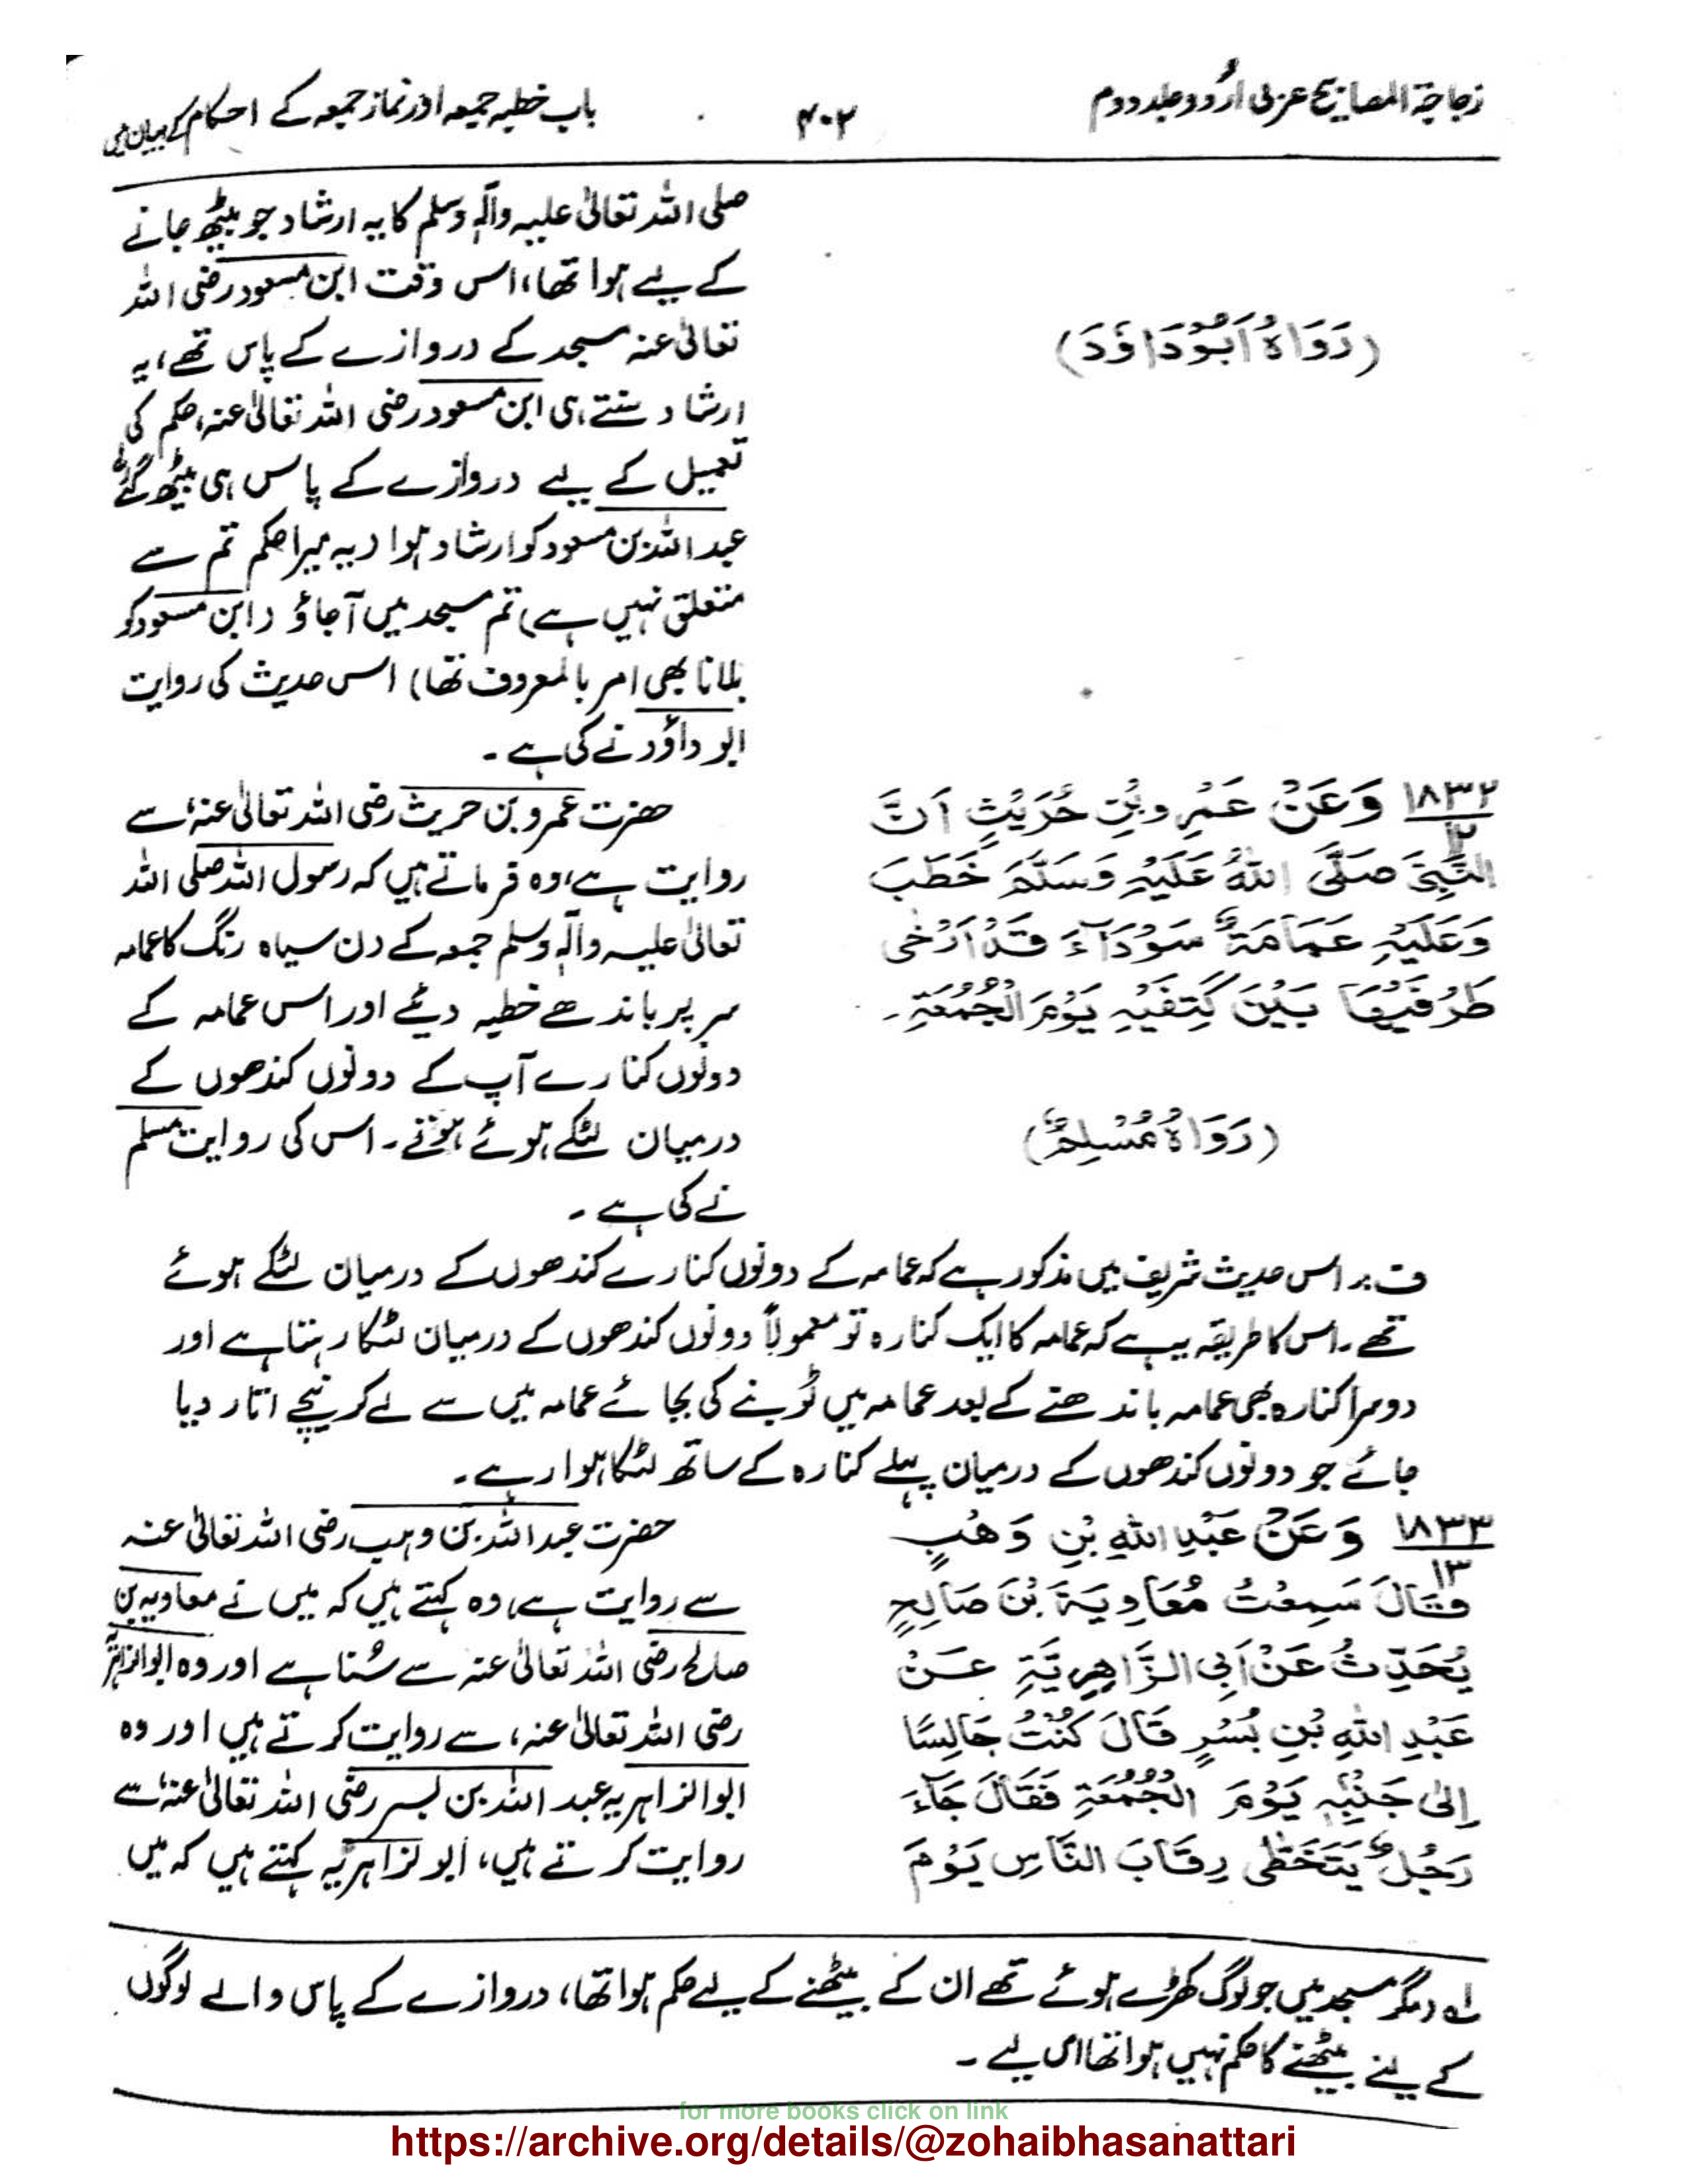 زجاجۃ المصابیح عربی اُردو جلد دوم
۴۰۲
باب خطبہ جمعہ اور نماز جمعہ کے احکام کے بیان میں
(رَوَاہُ اَبُوْدَاوٗدَ)
صلی اللہ تعالیٰ علیہ وآلہٖ وسلم کا یہ ارشاد جو بیٹھ جانے
کے لیے ہوا تھا، اس وقت ابن مسعود رضی اللہ
تعالیٰ عنہ مسجد کے دروازے کے پاس تھے، یہ
ارشاد سنتے ہی ابن مسعود رضی اللہ تعالیٰ عنہ، حکم کی
تعمیل کے لیے دروازے کے پاس ہی بیٹھ گئے
عبداللہ بن مسعود کو ارشاد ہوا (یہ میرا حکم تم سے
متعلق نہیں ہے) تم مسجد میں آجاؤ (ابن مسعود کو
بلانا بھی امر بالمعروف تھا) اس حدیث کی روایت
ابو داؤد نے کی ہے۔
۱۸۳۲
۱۲
وَعَنْ عَمْرِو بْنِ حُرَيْثٍ اَنَّ
النَّبِیَّ صَلَّی اللہُ عَلَيْہِ وَسَلَّمَ خَطَبَ
وَعَلَيْہِ عَمَامَةٌ سَوْدَآءَ قَدْ اَرْخٰی
طَرْفَيْهَا بَيْنَ كَتِفَيْہِ يَوْمَ الْجُمُعَةِ۔
(رَوَاہُ مُسْلِمٌ)
حضرت عمرو بن حریث رضی اللہ تعالیٰ عنہ، سے
روایت ہے، وہ فرماتے ہیں کہ رسول اللہ صلی اللہ
تعالیٰ علیہ وآلہٖ وسلم جمعہ کے دن سیاہ رنگ کا عمامہ
سر پر باندھے خطبہ دیئے اور اس عمامہ کے
دونوں کنارے آپ کے دونوں کندھوں کے
درمیان لٹکے ہوئے ہوتے۔ اس کی روایت مسلم
نے کی ہے۔
ف: اس حدیث شریف میں مذکور ہے کہ عمامہ کے دونوں کنارے کندھوں کے درمیان لٹکے ہوئے
تھے۔ اس کا طریقہ یہ ہے کہ عمامہ کا ایک کنارہ تو معمولاً دونوں کندھوں کے درمیان لٹکا رہتا ہے اور
دوسرا کنارہ بھی عمامہ باندھنے کے بعد عمامہ میں ٹوبنے کی بجائے عمامہ میں سے لے کر نیچے اتار دیا
جائے جو دونوں کندھوں کے درمیان پہلے کنارہ کے ساتھ لٹکا ہوا رہے۔
۱۸۳۳
۱۳
وَعَنْ عَبْدِ اللہِ بْنِ وَهْبٍ
قَالَ سَمِعْتُ مُعَاوِيَةَ بْنَ صَالِحٍ
يُحَدِّثُ عَنْ اَبِی الزَّاهِرِيَّةِ عَنْ
عَبْدِ اللہِ بْنِ بُسْرٍ قَالَ كُنْتُ جَالِسًا
اِلٰی جَنْبِہٖ يَوْمَ الْجُمُعَةِ فَقَالَ جَآءَ
رَجُلٌ يَتَخَطّٰی رِقَابَ النَّاسِ يَوْمَ
حضرت عبداللہ بن وہب رضی اللہ تعالیٰ عنہ
سے روایت ہے، وہ کہتے ہیں کہ میں نے معاویہ بن
صالح رضی اللہ تعالیٰ عنہ سے سُنا ہے اور وہ ابوالزاہریہ
رضی اللہ تعالیٰ عنہ، سے روایت کرتے ہیں اور وہ
ابوالزاہریہ عبد اللہ بن بسر رضی اللہ تعالیٰ عنہ، سے
روایت کرتے ہیں، ابو لزاہریہ کہتے ہیں کہ میں
لہ (مگر مسجد میں جو لوگ کھڑے ہوئے تھے ان کے بیٹھنے کے لیے حکم ہوا تھا، دروازے کے پاس والے لوگوں
کے لئے بیٹھنے کا حکم نہیں ہوا تھا اس لیے۔
for more books click on link
https://archive.org/details/@zohaibhasanattari